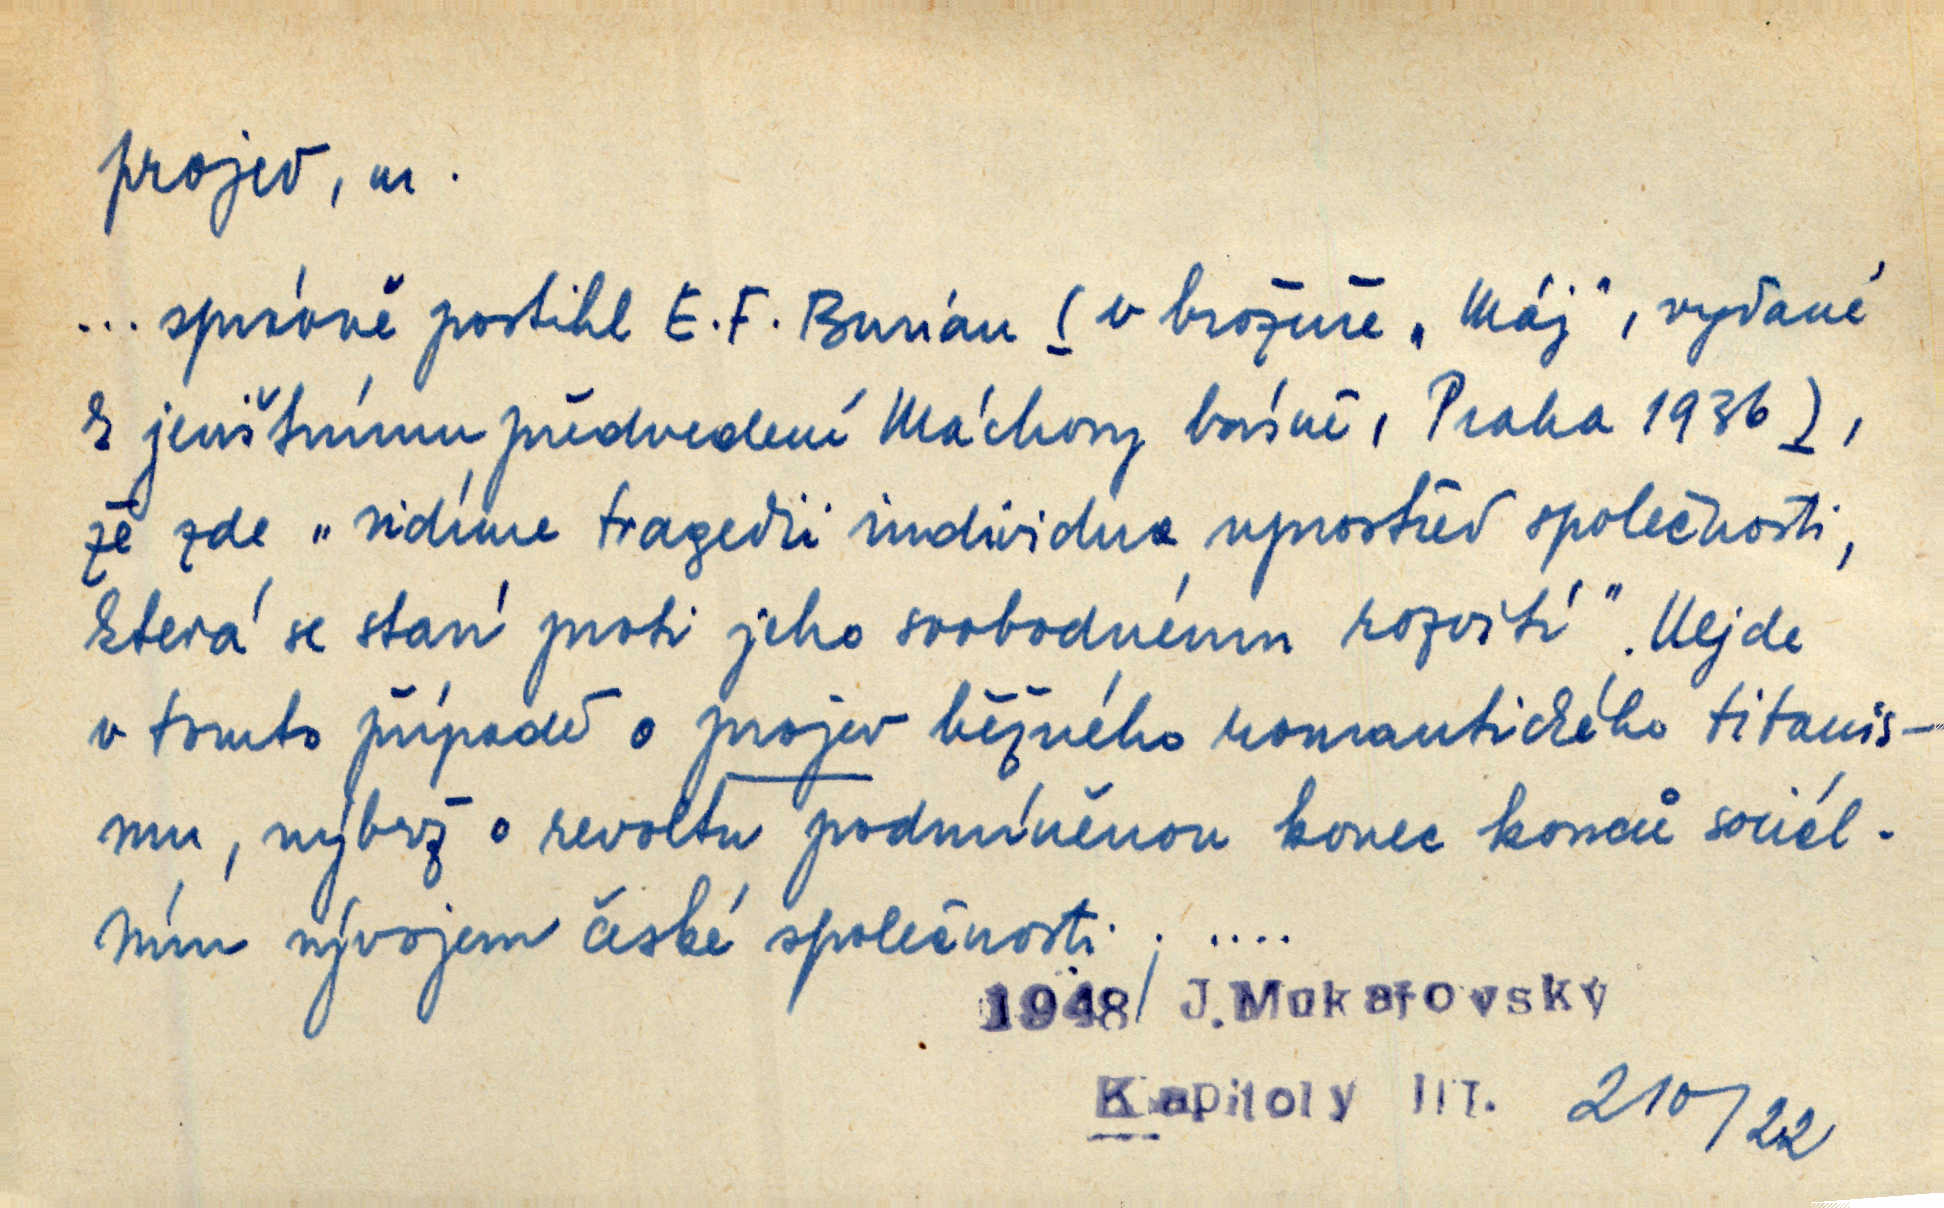 projev, m.
... správně postihl E.F. Burian (v brožuře „Máj", vydané
k jevištnímu předvedení Máchovy básně, Praha 1936),
že zde „vidíme tragedii individua uprostřed společnosti,
která se staví proti jeho svobodnému rozvití". Nejde
v tomto případě o projev běžného romantického titanis-
mu, nýbrž o revoltu podmíněnou konec konců sociál-
ním vývojem české společnosti. ....
1948/ J.Mukařovský
Kapitoly III. 210/22